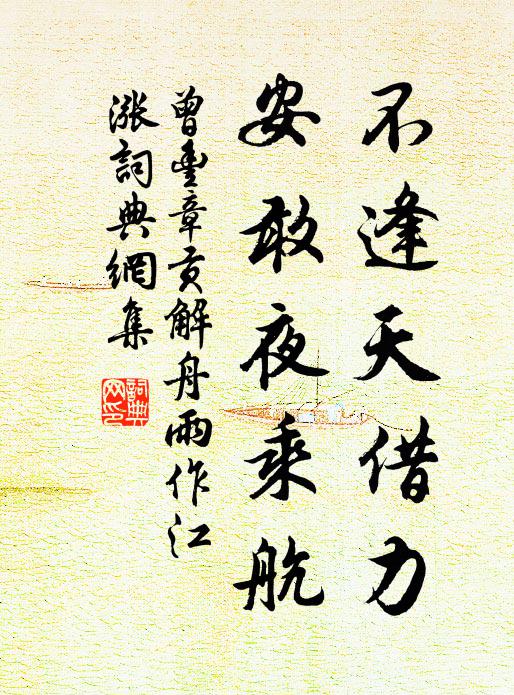 不逢天借力
安敢夜乘航
曾豐章贡解舟雨作江
漲詞典網集
詞典网印